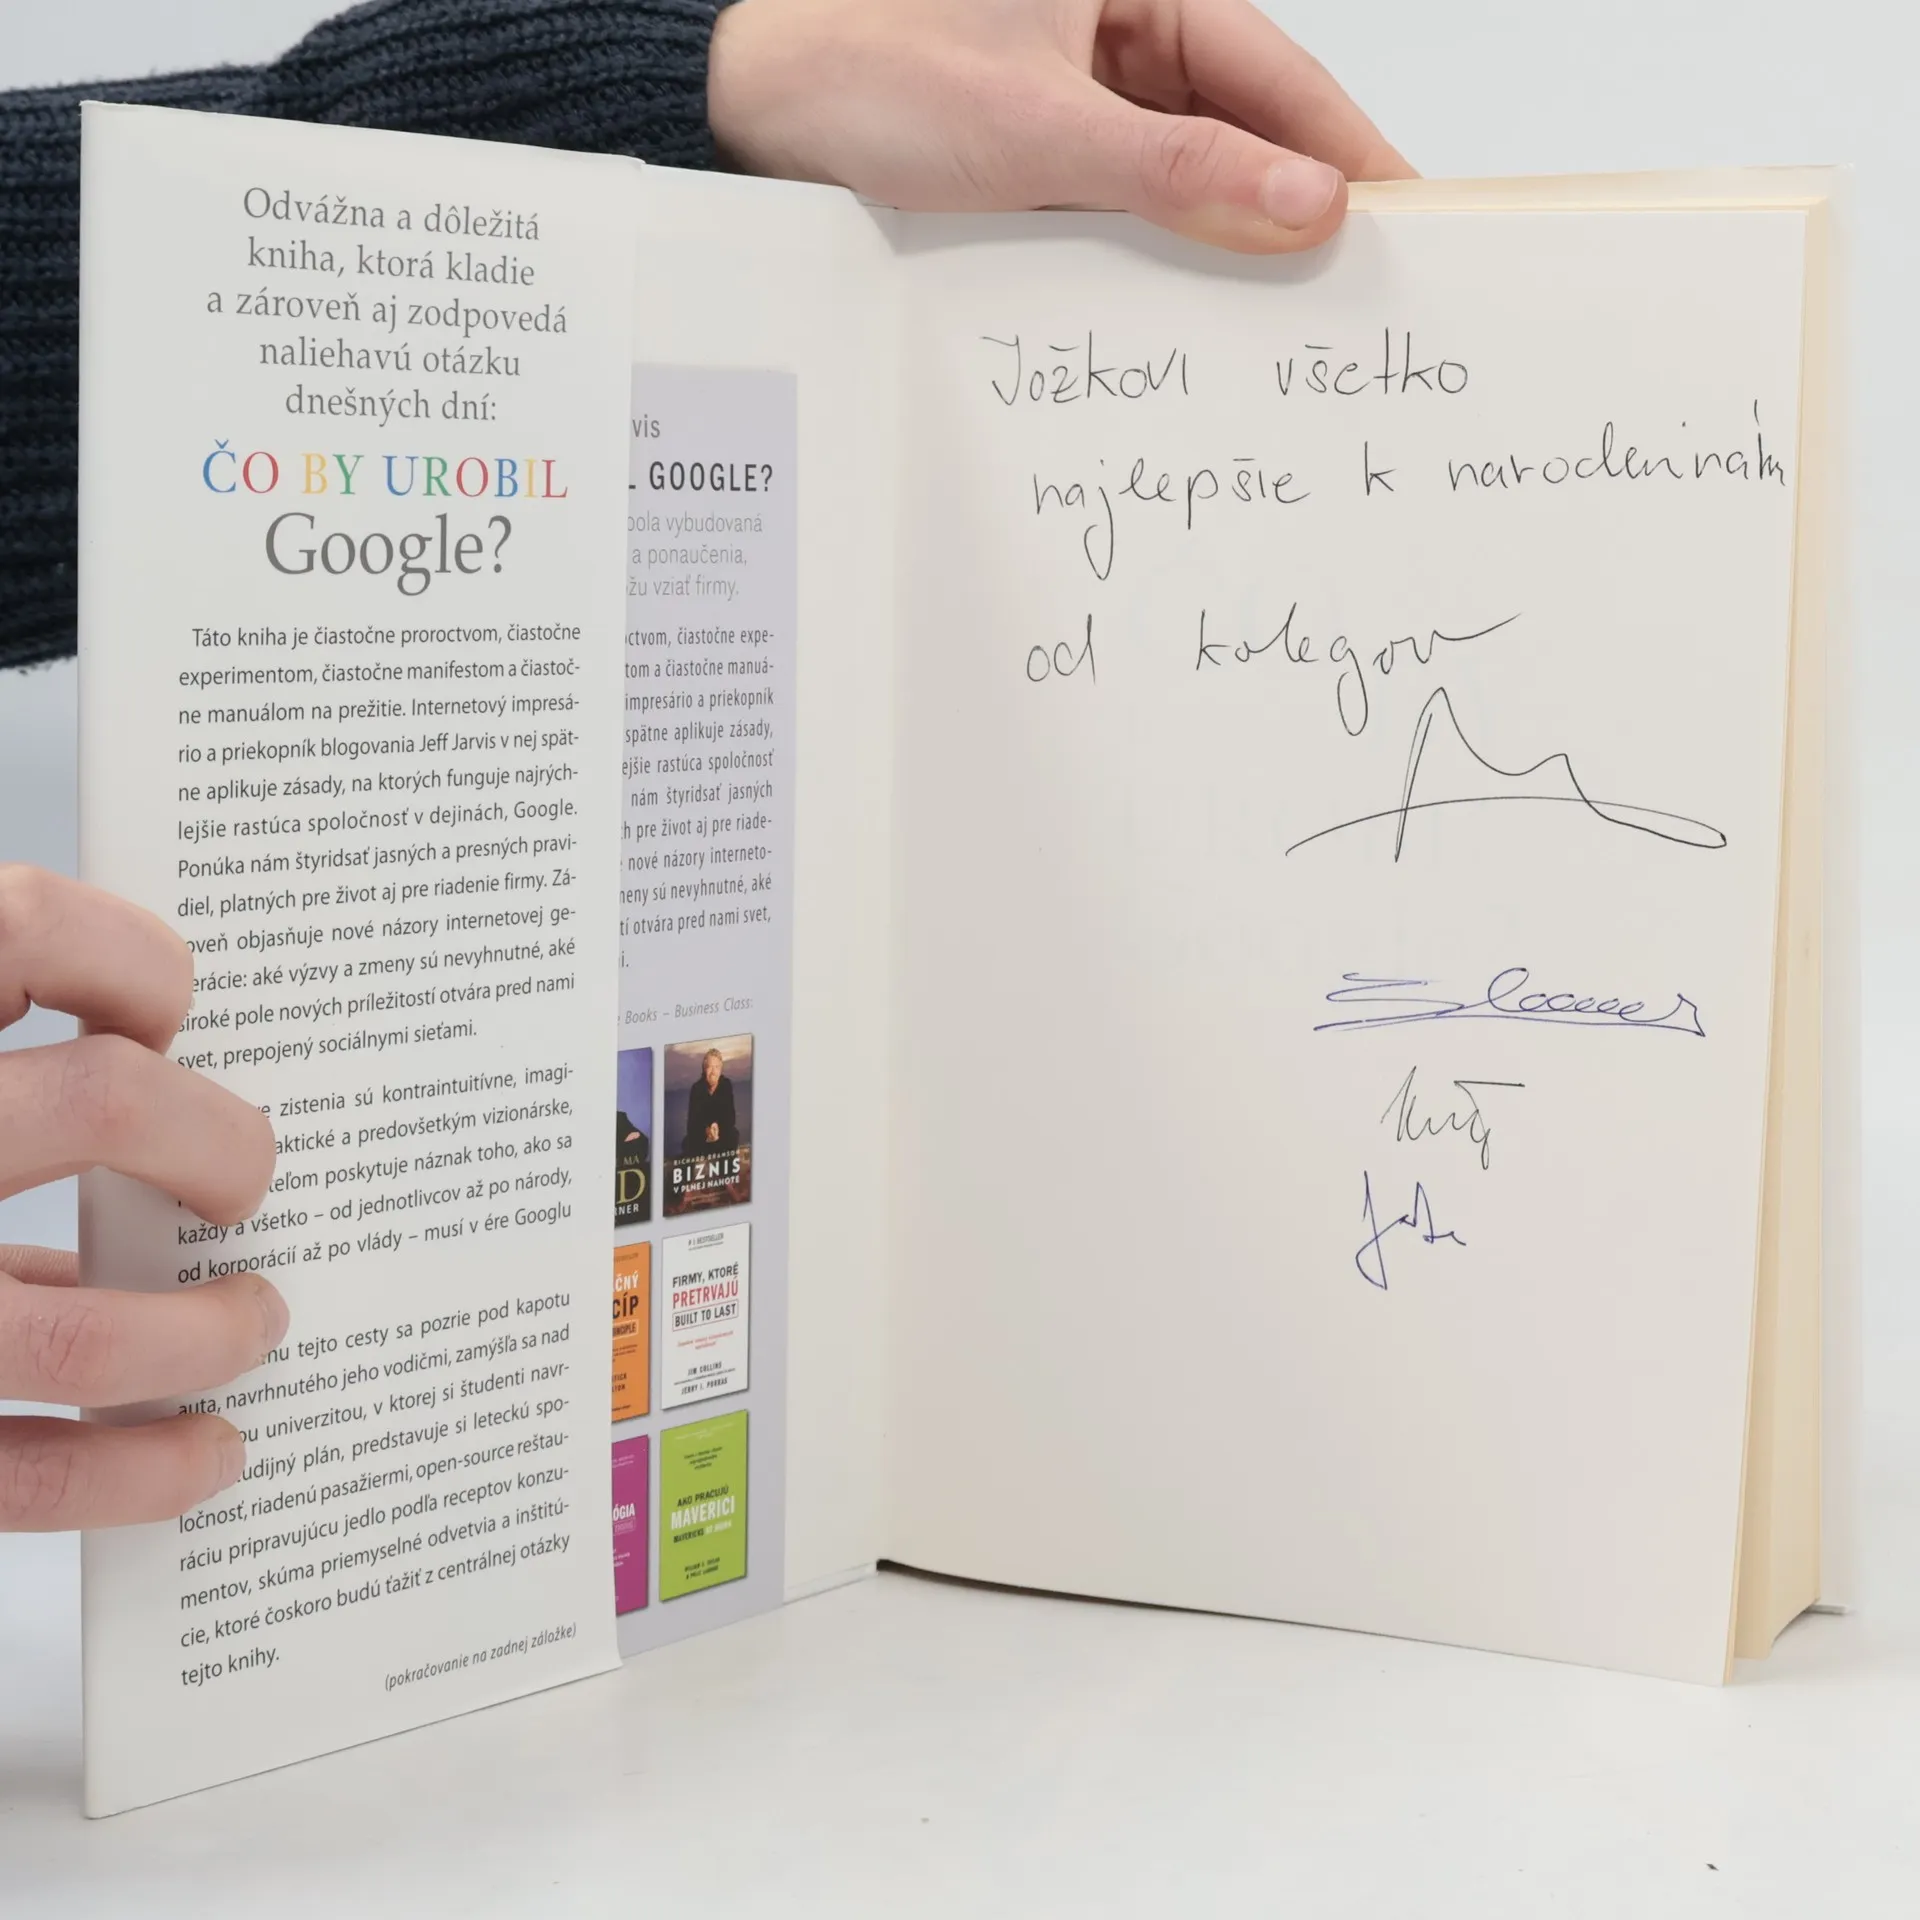 Odvážna a dôležitá
kniha, ktorá kladie
a zároveň aj zodpovedá
naliehavú otázku
dnešných dní:
ČO BY UROBIL
Google?
Táto kniha je čiastočne proroctvom, čiastočne
experimentom, čiastočne manifestom a čiastoč-
ne manuálom na prežitie. Internetový impresá-
rio a priekopník blogovania Jeff Jarvis v nej spät-
ne aplikuje zásady, na ktorých funguje najrých-
lejšie rastúca spoločnosť v dejinách, Google.
Ponúka nám štyridsať jasných a presných pravi-
diel, platných pre život aj pre riadenie firmy. Zá-
oveň objasňuje nové názory internetovej ge-
erácie: aké výzvy a zmeny sú nevyhnutné, aké
široké pole nových príležitostí otvára pred nami
svet, prepojený sociálnymi sieťami.
zistenia sú kontraintuitívne, imagi-
aktické a predovšetkým vizionárske,
teľom poskytuje náznak toho, ako sa
každý a všetko – od jednotlivcov až po národy,
od korporácií až po vlády – musí v ére Googlu
tejto cesty sa pozrie pod kapotu
auta, navrhnutého jeho vodičmi, zamýšľa sa nad
ou univerzitou, v ktorej si študenti navr-
udijný plán, predstavuje si leteckú spo-
ločnosť, riadenú pasažiermi, open-source reštau-
ráciu pripravujúcu jedlo podľa receptov konzu-
mentov, skúma priemyselné odvetvia a inštitú-
cie, ktoré čoskoro budú ťažiť z centrálnej otázky
tejto knihy.
(pokračovanie na zadnej záložke)
vis
GOOGLE?
bola vybudovaná
a ponaučenia,
žu vziať firmy.
ctvom, čiastočne expe-
tom a čiastočne manuá-
impresário a priekopník
spätne aplikuje zásady,
ejšie rastúca spoločnosť
nám štyridsať jasných
h pre život aj pre riade-
nové názory interneto-
meny sú nevyhnutné, aké
tí otvára pred nami svet,
i.
Books – Business Class:
MA
D
RNER
RICHARD BRANSON
BIZNIS
V PLNEJ NAHOTE
ČNÝ
CÍP
#1 BESTSELLER
FIRMY, KTORÉ
PRETRVAJÚ
BUILT TO LAST
JIM COLLINS
JERRY I. PORRAS
ÓGIA
AKO PRACUJÚ
MAVERICI
MAVERICKS AT WORK
Jožkovi všetko
najlepšie k narodeninám
od kolegov